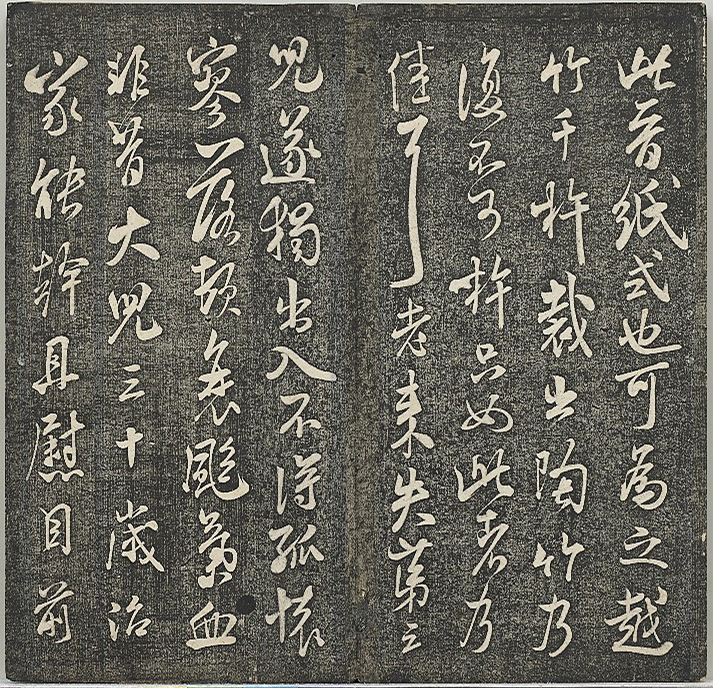 此晉紙式也可為之越
竹千杵裁出陶竹乃
復不可杵只如此者乃
佳耳老來失第三
兒遂獨出入不得孤懷
寥落頓衰颯氣血
非昔大兒三十歲治
家能幹且慰目前